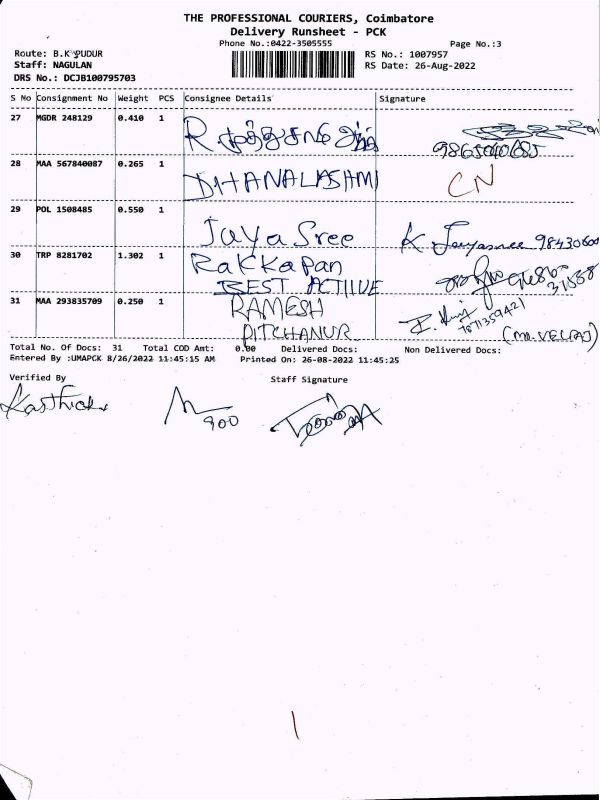 THE PROFESSIONAL COURIERS, Coimbatore
Delivery Runsheet - PCK
Phone No.:0422-3505555 Page No.:3
Route: B.K PUDUR RS No.: 1007957
Staff: NAGULAN RS Date: 26-Aug-2022
DRS No.: DCJB100795703
S No Consignment No Weight PCS Consignee Details Signature
27 MGDR 248129 0.410 1 R
28 MAA 567840087 0.265 1 DHANALASHMI CN
29 POL 1508485 0.550 1 Jaya Sree K Jayasree
30 TRP 8281702 1.302 1 Rakkapan
BEST ACTIIUE
31 MAA 293835709 0.250 1 RAMESH
7871359421
PITCHANUR (MR.VELRAJ)
Total No. Of Docs: 31 Total COD Amt: 0.00 Delivered Docs: Non Delivered Docs:
Entered By :UMAPCK 8/26/2022 11:45:15 AM Printed On: 26-08-2022 11:45:25
Verified By Staff Signature
900